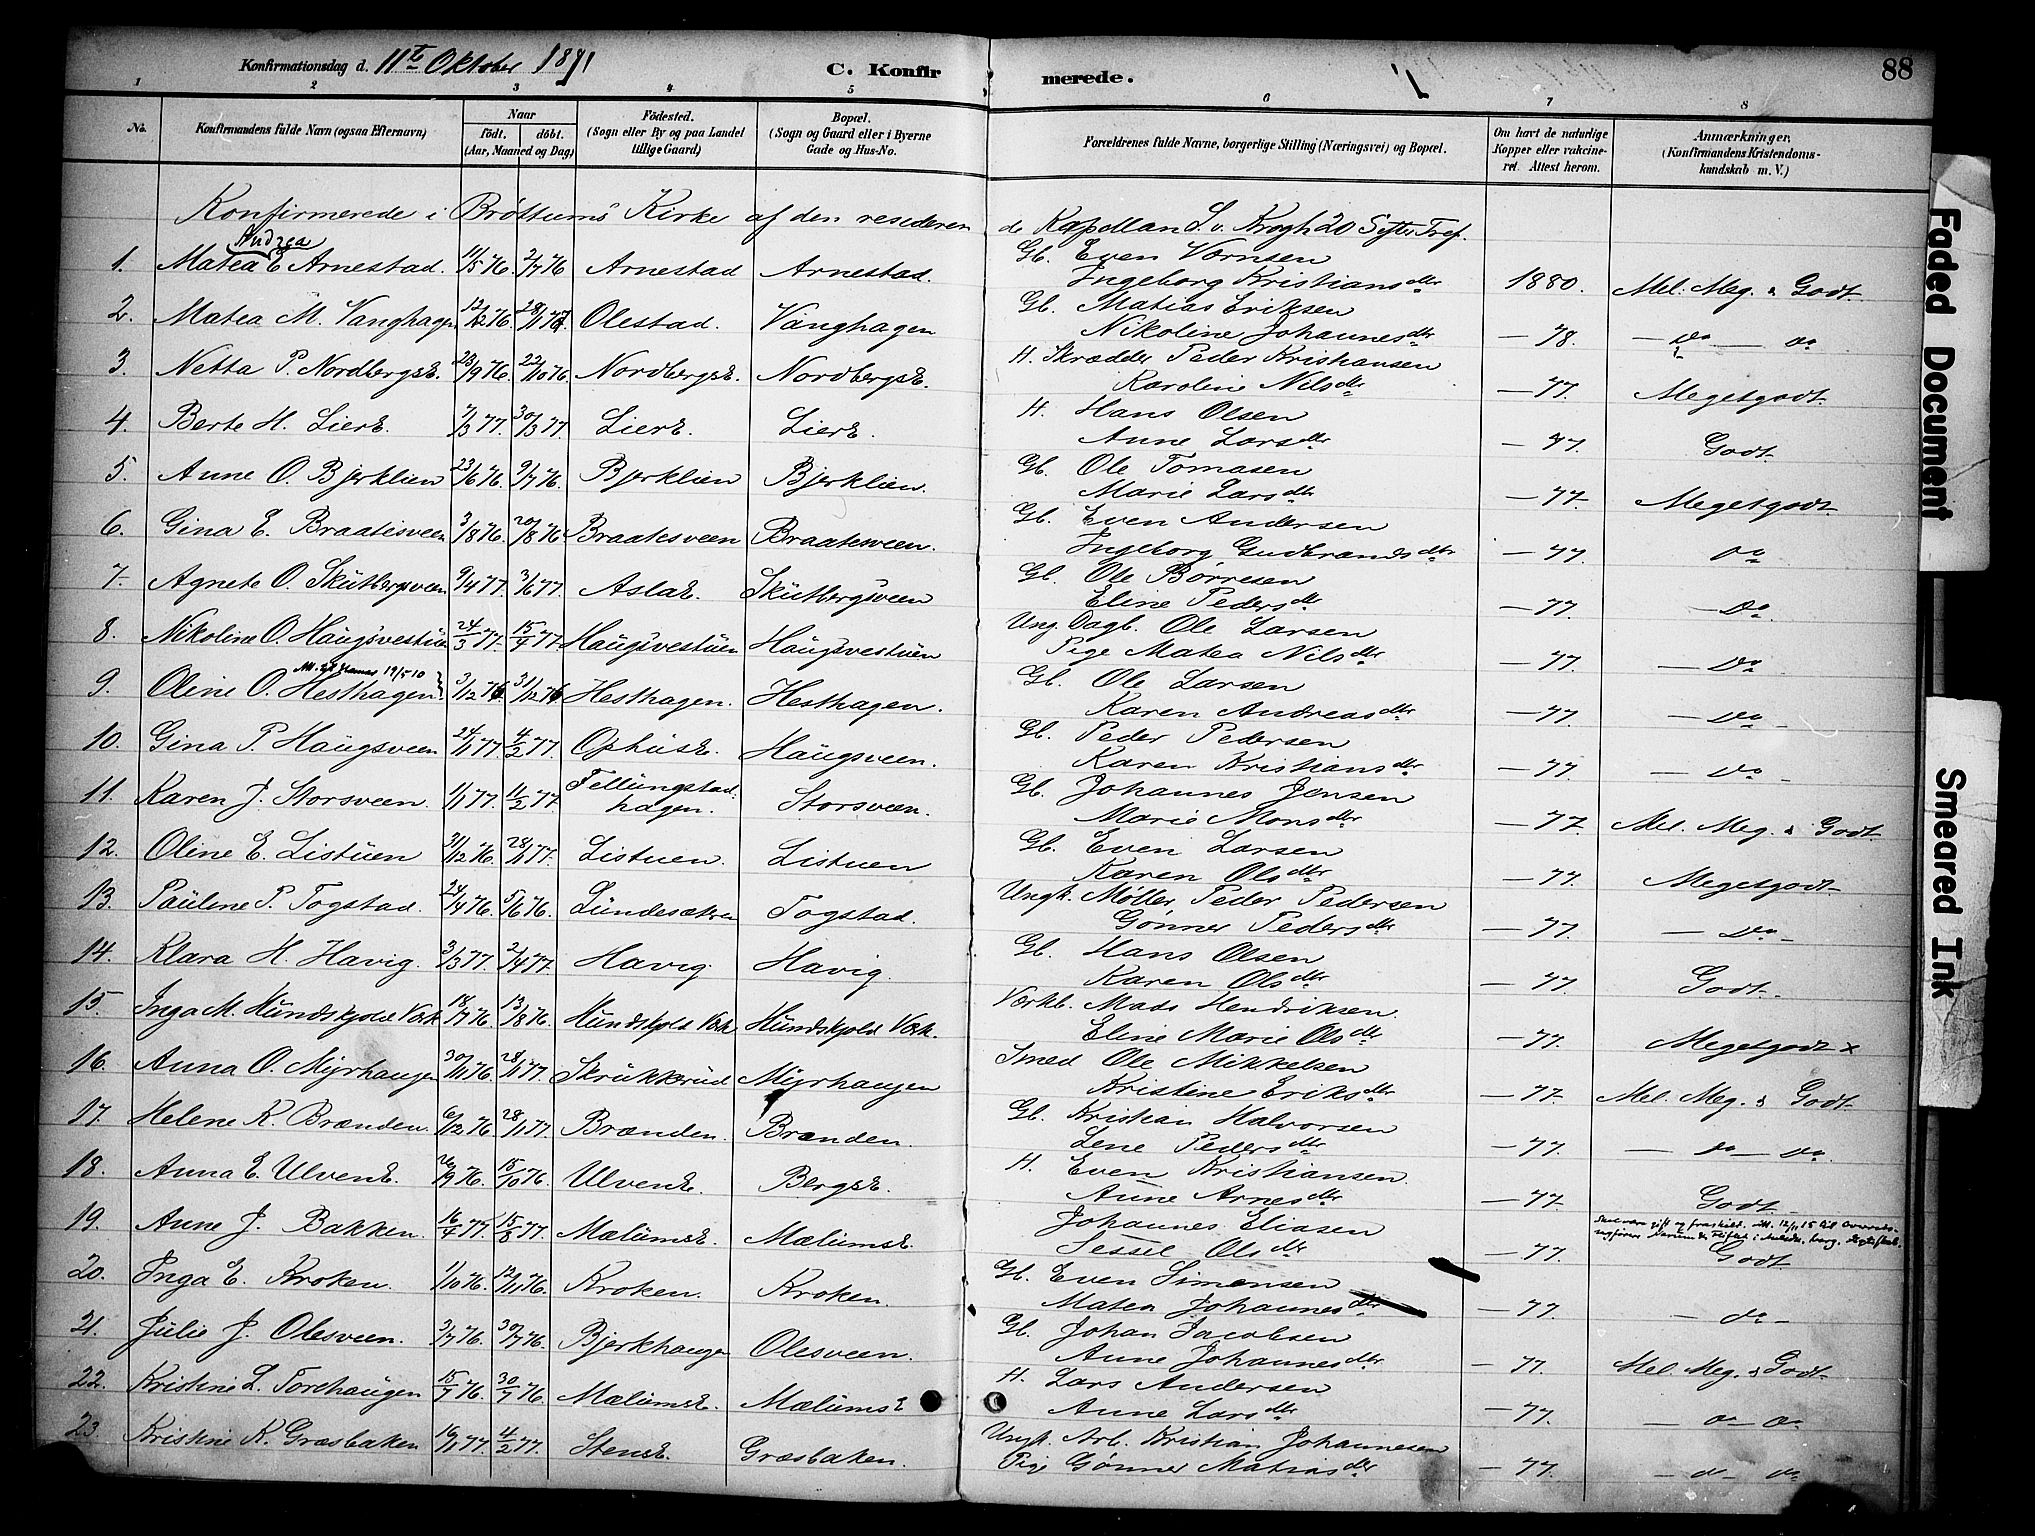 Konfirmationsdag d. 11te Oktober 1891
C. Konfir merede.
88
1 2 3 4 5 6 7 8
No.
Konfirmandens fulde Navn (ogsaa Efternavn)
Naar
født. døbt.
(Aar, Maaned og Dag)
Fødested.
(Sogn eller By og paa Landet tillige Gaard)
Bopæl.
(Sogn og Gaard eller i Byerne Gade og Hus-No.
Forældrenes fulde Navne, borgerlige Stilling (Næringsvei) og Bopæl.
Om havt de naturlige Kopper eller vakcineret. Attest herom.
Anmærkninger,
(Konfirmandens Kristendomskundskab m. V.)
Konfirmerede i Brøttums Kirke af den residerende Kapellan S. v. Krogh 20 S. Tref.
Andrea
1. Matea E Arnestad. 11/5 76. 2/7 76 Arnestad Arnestad. Gb. Even
Ingeborg Kristiansdtr 1880. Mel. Meg. & Godt
2. Matea M. Vanghagen 12/12 76. Olestad. Vanghagen Gb. Matias Eriksen
Nikoline Johannesdtr — 78. — do — do
3. Netta P. NordbergsE. 23/9 76. 22/10 76. NordbergsE. NordbergsE. H. Skrædder Peder Kristiansen
Karolin Nilsdtr — 77. Megetgodt.
4. Berte H. LierE. 7/3 77. 30/3 77. LierE. LierE. H. Hans Olsen
Anne Larsdtr — 77. Godt.
5. Anne O. Bjerklien 23/6 76. 9/7 76. Bjerklien Bjerklien. Gb. Ole Tomasen
Marie Larsdtr — 77. Megetgodt.
6. Gina E. Braatesveen 3/8 76. 20/8 76 Braatesveen Braatesveen. Gb. Even Andersen
Ingeborg Gudbrandsdtr — 77. do
7. Agnete O. Skutbergsveen 9/4 77. 3/6 77. AslaE. Skutbergsveen Gb. Ole Børresen
Eline Pedersdtr — 77 — do.
8. Nikoline O. Haugsvestuen 24/3 77. 15/4 77. Haugsvestuen Haugsvestuen Ung. Dagb. Ole Larsen
Pige Matea Nilsdtr — 77. — do
Att. til Hamar 19/5 10
9. Oline O. Hesthagen 3/12 76 31/12 76 Hesthagen. Hesthagen. Gb. Ole Larsen
Karen Andreasdtr — 77. — do —
10. Gina P. Haugsveen 24/1 77. 4/2 77. OphusE. Haugsveen. Gb. Peder Pedersen
Karen Kristiansdtr — 77. — do —
11. Karen J. Storsveen 1/1 77. 11/2 77. Fellungstadhagen. Storsveen. Gb. Johannes Jensen
Marie Monsdtr — 77. Mel. Meg. & Godt
12. Oline E. Listuen 31/12 76. 28/1 77. Listuen. Listuen Gb. Even Larsen
Karen Olsdtr — 77. Megetgodt.
13. Pauline P. Togstad. 24/4 76. 5/6 76. Lundesækren Togstad. Ungk. Møller Peder Pedersen
Gønner Pedersdtr — 77. — do —
14. Klara H. Havig. 3/3 77. 2/4 77. Havig. Havig. Gb. Hans Olsen
Karen Olsdtr — 77. Godt.
15. Inga M. Hundskjold Værk 18/7 76. 13/8 76. Hundskjold Værk Hundskjold Værk. Værkb. Mads Hendriksen.
Eline Marie Olsdtr — 77. Megetgodt x
16. Anna O. Myrhaugen 30/11 76. 28/1 77. Skrukkerud Myrhaugen Smed Ole Mikkelsen
Kristine Eriksdtr — 77. Mel. Meg. & Godt
17. Helene K. Brænden. 6/12 76 28/1 77. Brænden. Brænden. Gb. Kristian Halvorsen
Lene Pedersdtr — 77. — do — do.
18. Anna E. UlvenE. 26/9 76. 15/10 76. UlvenE. BergsE. H. Even Kristiansen.
Anne Arnesdtr — 77. Godt.
19. Anne J. Bakken. 16/4 77. 77. MælumsE. MælumsE. Johannes Eliasen
Sessel Olsdtr — 77. Godt.
Skal være gift og fraskilt. Att. 12/11 15 til
20. Inga E. Kroken. 1/10 76. 12/11 76. Kroken. Kroken. Gb. Even Simensen
Matea Johannesdtr — 77. — do —
21. Julie J. Olesveen. 3/7 76. 30/7 76. Bjerkhaugen Olesveen. Gb. Johan Jacobsen
Anne Johannesdtr — 77. Mel. Meg. & Godt.
22. Kristine L. Torehaugen 15/7 76. 30/7 76. MælumsE. MælumsE H. Lars Andersen
Anne Larsdtr — 77. — do — do
23. Kristine K. Græsbaken 16/1 77. 4/2 77. StensE. Græsbaken. Ungk. Arb. Kristian Johannesen
Pige Gønner Matiasdtr — 77. — do — do
Faded Document
Smeared Ink